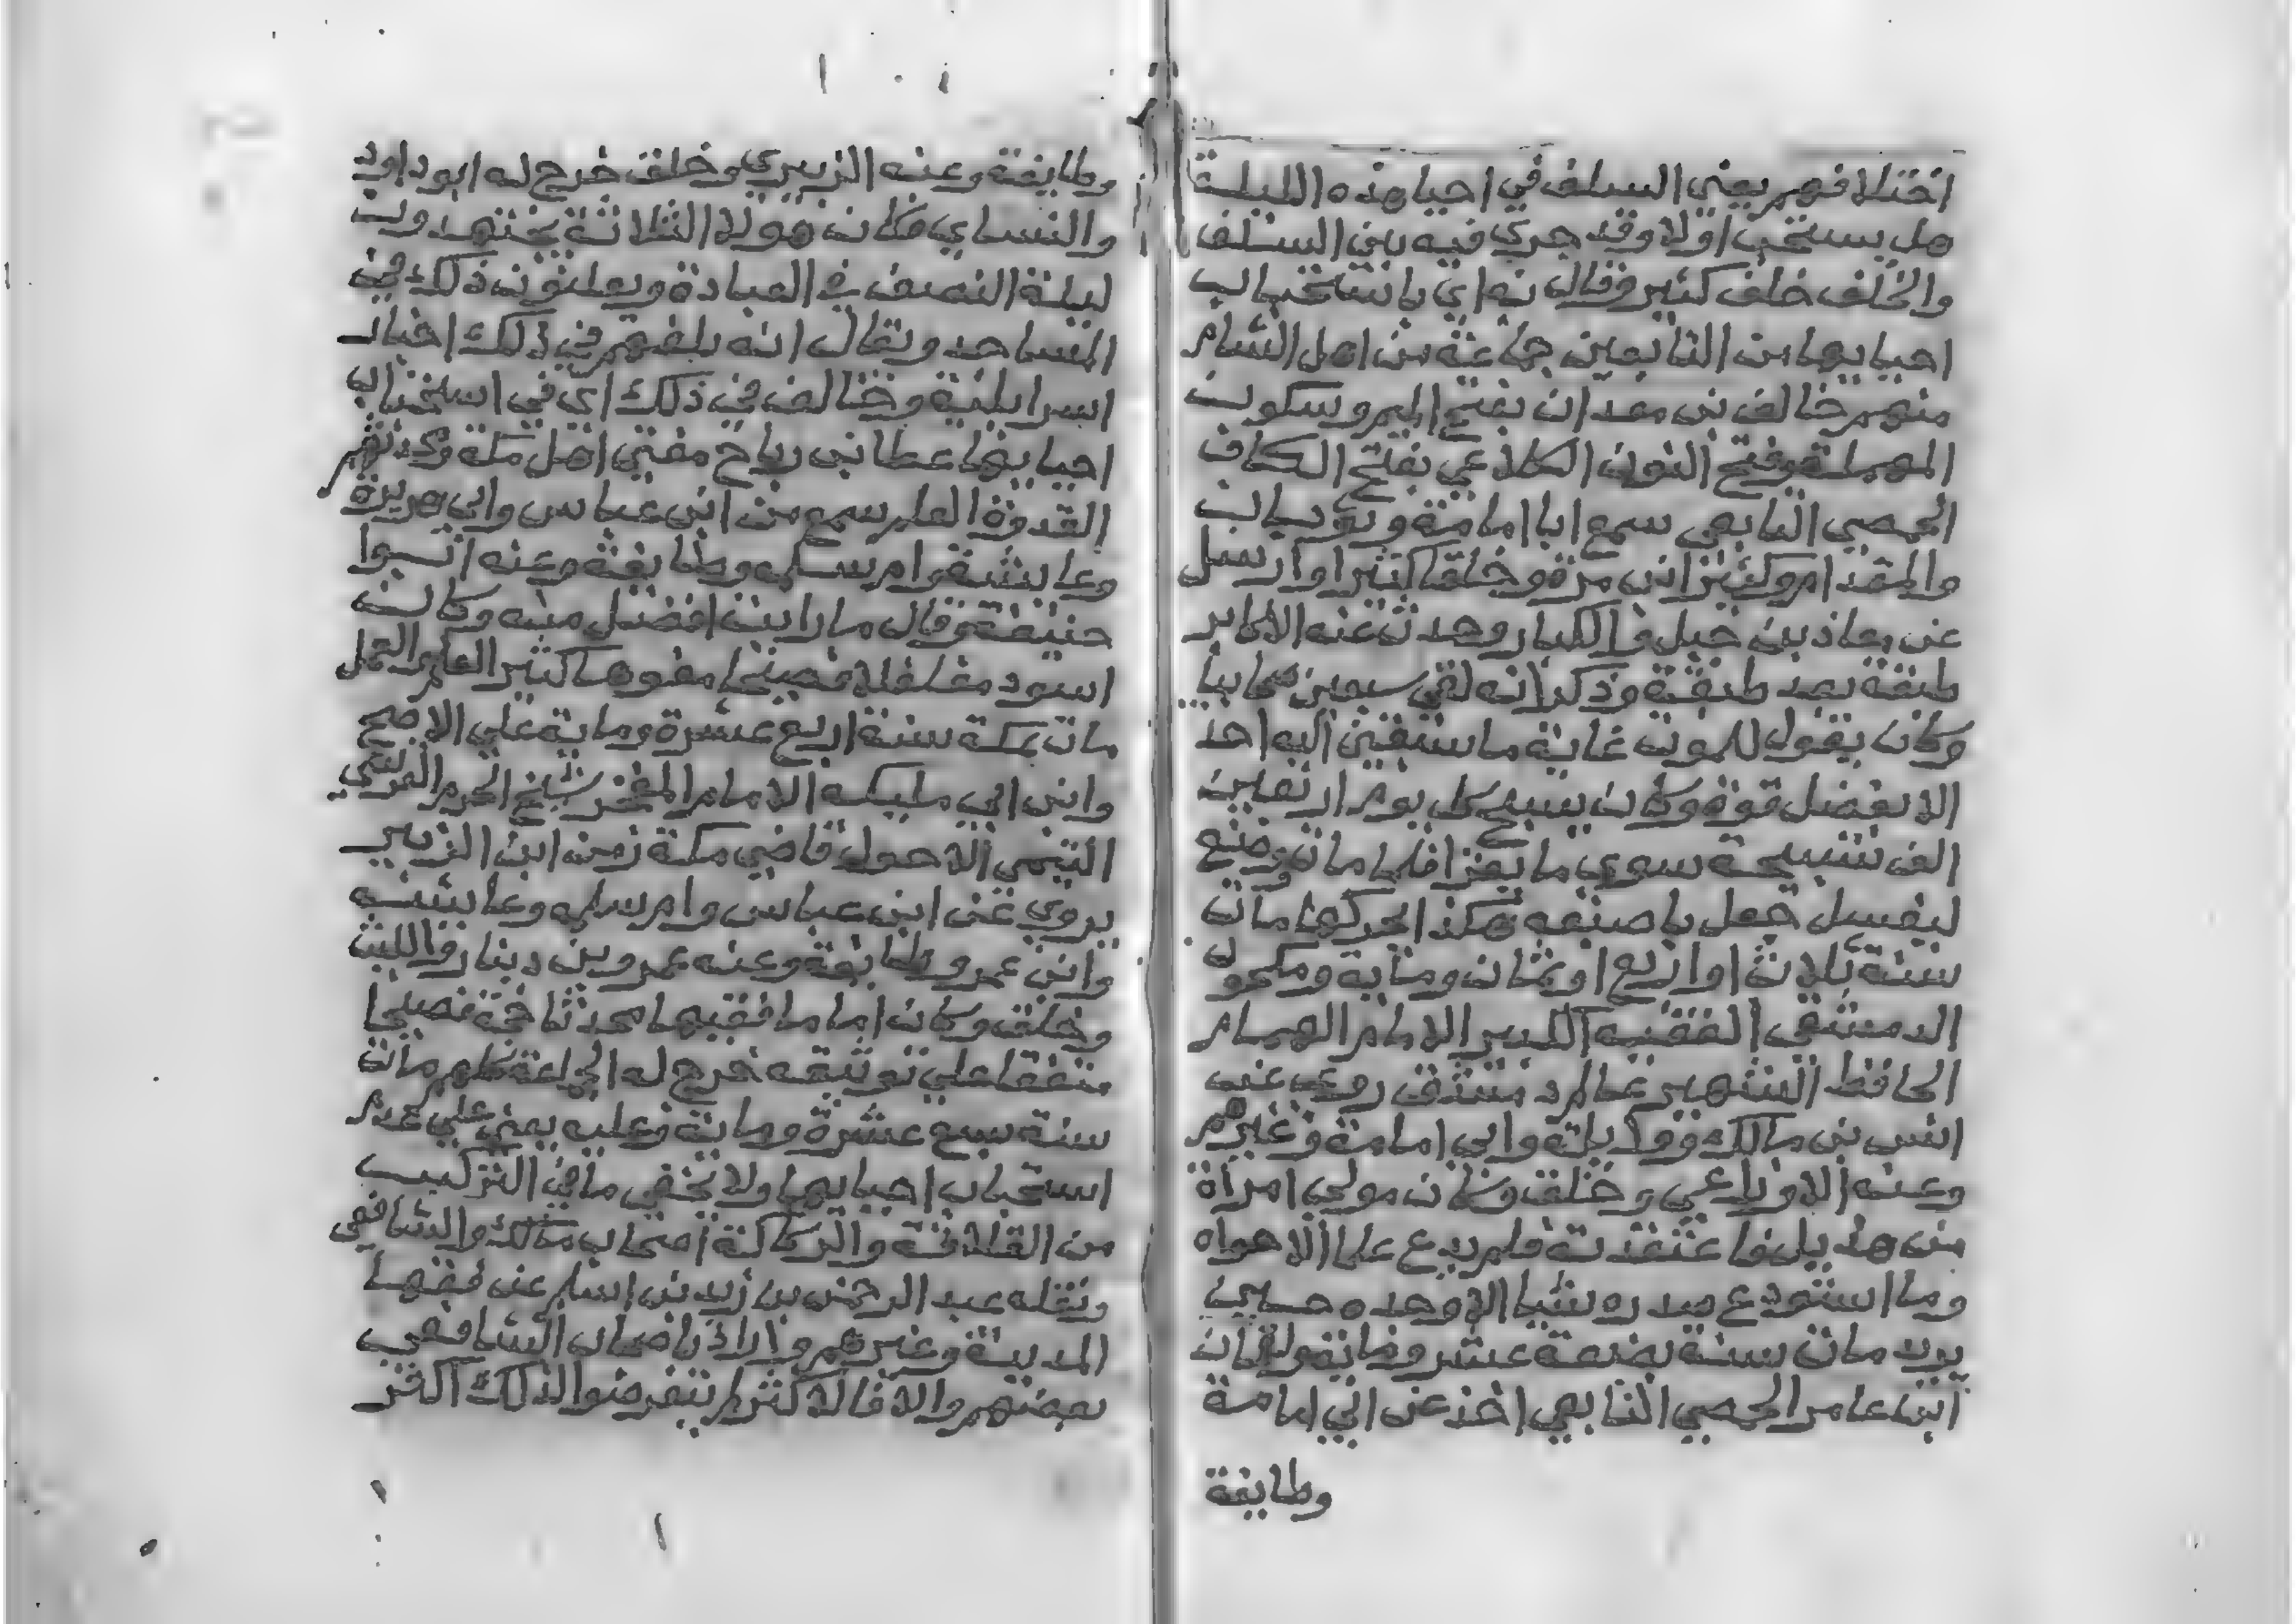 اختلافهم يعني السلف في احيا هذه الليلة
هل يستحب اولا وقد جري فيه بين السلف
والخلف خلف كثير فقال به اي باستحباب
احيايها من التابعين جماعة من اهل الشام
منهم خالد بن معدان بفتح الميم وسكون
المهملة وفتح النون الكلاعي بفتح الكاف
الحمصي التابعي سمع ابا امامة وثوبان
والمقدام وكثير ابن مرة وخلقا كثيرا وارسل
عن معاذ بن جبل والكبار وحدث عنه الاكابر
طبقة بعد طبقة وذكر انه لقي سبعين صحابيا
وكان يقول للموت غاية ما سبقني اليه احد
الا بفضل قوة وكان يسبح كل يوم اربعين
الف تسبيحة سوي ما يقرا فلما مات وضع
ليغسل جعل باصبعه هكذا يحركها مات
سنة ثلاث او اربع او ثمان وماية ومكحول
الدمشقي الفقيه الكبير الامام الهمام
الحافظ الشهير عالم دمشق روي عن
انس بن مالك وواثلة وابي امامة وغيرهم
وعنه الاوزاعي وخلق وكان مولي امراة
من هذيل فاعتقته فلم يدع علما الا حواه
وما استودع صدره شيا الا وجده حين
يريد مات سنة بضعة عشر وماية ولقمان
ابن عامر الحمصي التابعي اخذ عن ابي امامة
وطايفة
وطايفة وعنه الزبيدي وخلف خرج له ابو داود
والنساي فكان هولا الثلاثة يجتهدون
ليلة النصف في العبادة ويعلنون ذلك في
المساجد ويقال انه بلغهم في ذلك اخبار
اسرايلية وخالف في ذلك اي في استحباب
احيايها عطا بن رباح مفتي اهل مكة
القدوة العلم سمع من ابن عباس وابي هريرة
وعايشة وام سلمه وطايفة وعنه ابوا
حنيفة وقال ما رايت افضل منه وكان
اسود مفلفلا فصيحا مفوها كثير العلم والعمل
مات بمكة سنة اربع عشرة وماية علي الاصح
وابن ابي مليكه الامام شيخ الحرم
التيمي الاحول قاضي مكة زمن ابن الزبير
يروي عن ابن عباس وام سلمه وعايشه
وابن عمر وطايفة وعنه عمرو بن دينار والليث
وخلق وكان اماما فقيها محدثا حجة فصيحا
متفقا علي توثيقه خرج له الجماعة كلهم مات
سنة سبع عشرة وماية وعليه يعني علي عدم
استحباب احيايها ولا يخفي ما في التركيب
من القلاقة والركاكة اصحاب مالك والشافعي
ونقله عبد الرحمن بن زيد بن اسلم عن فقها
المدينة وغيرهم واراد باصحاب الشافعي
بعضهم والا فالاكثر لم يتعرضوا لذلك اكثر